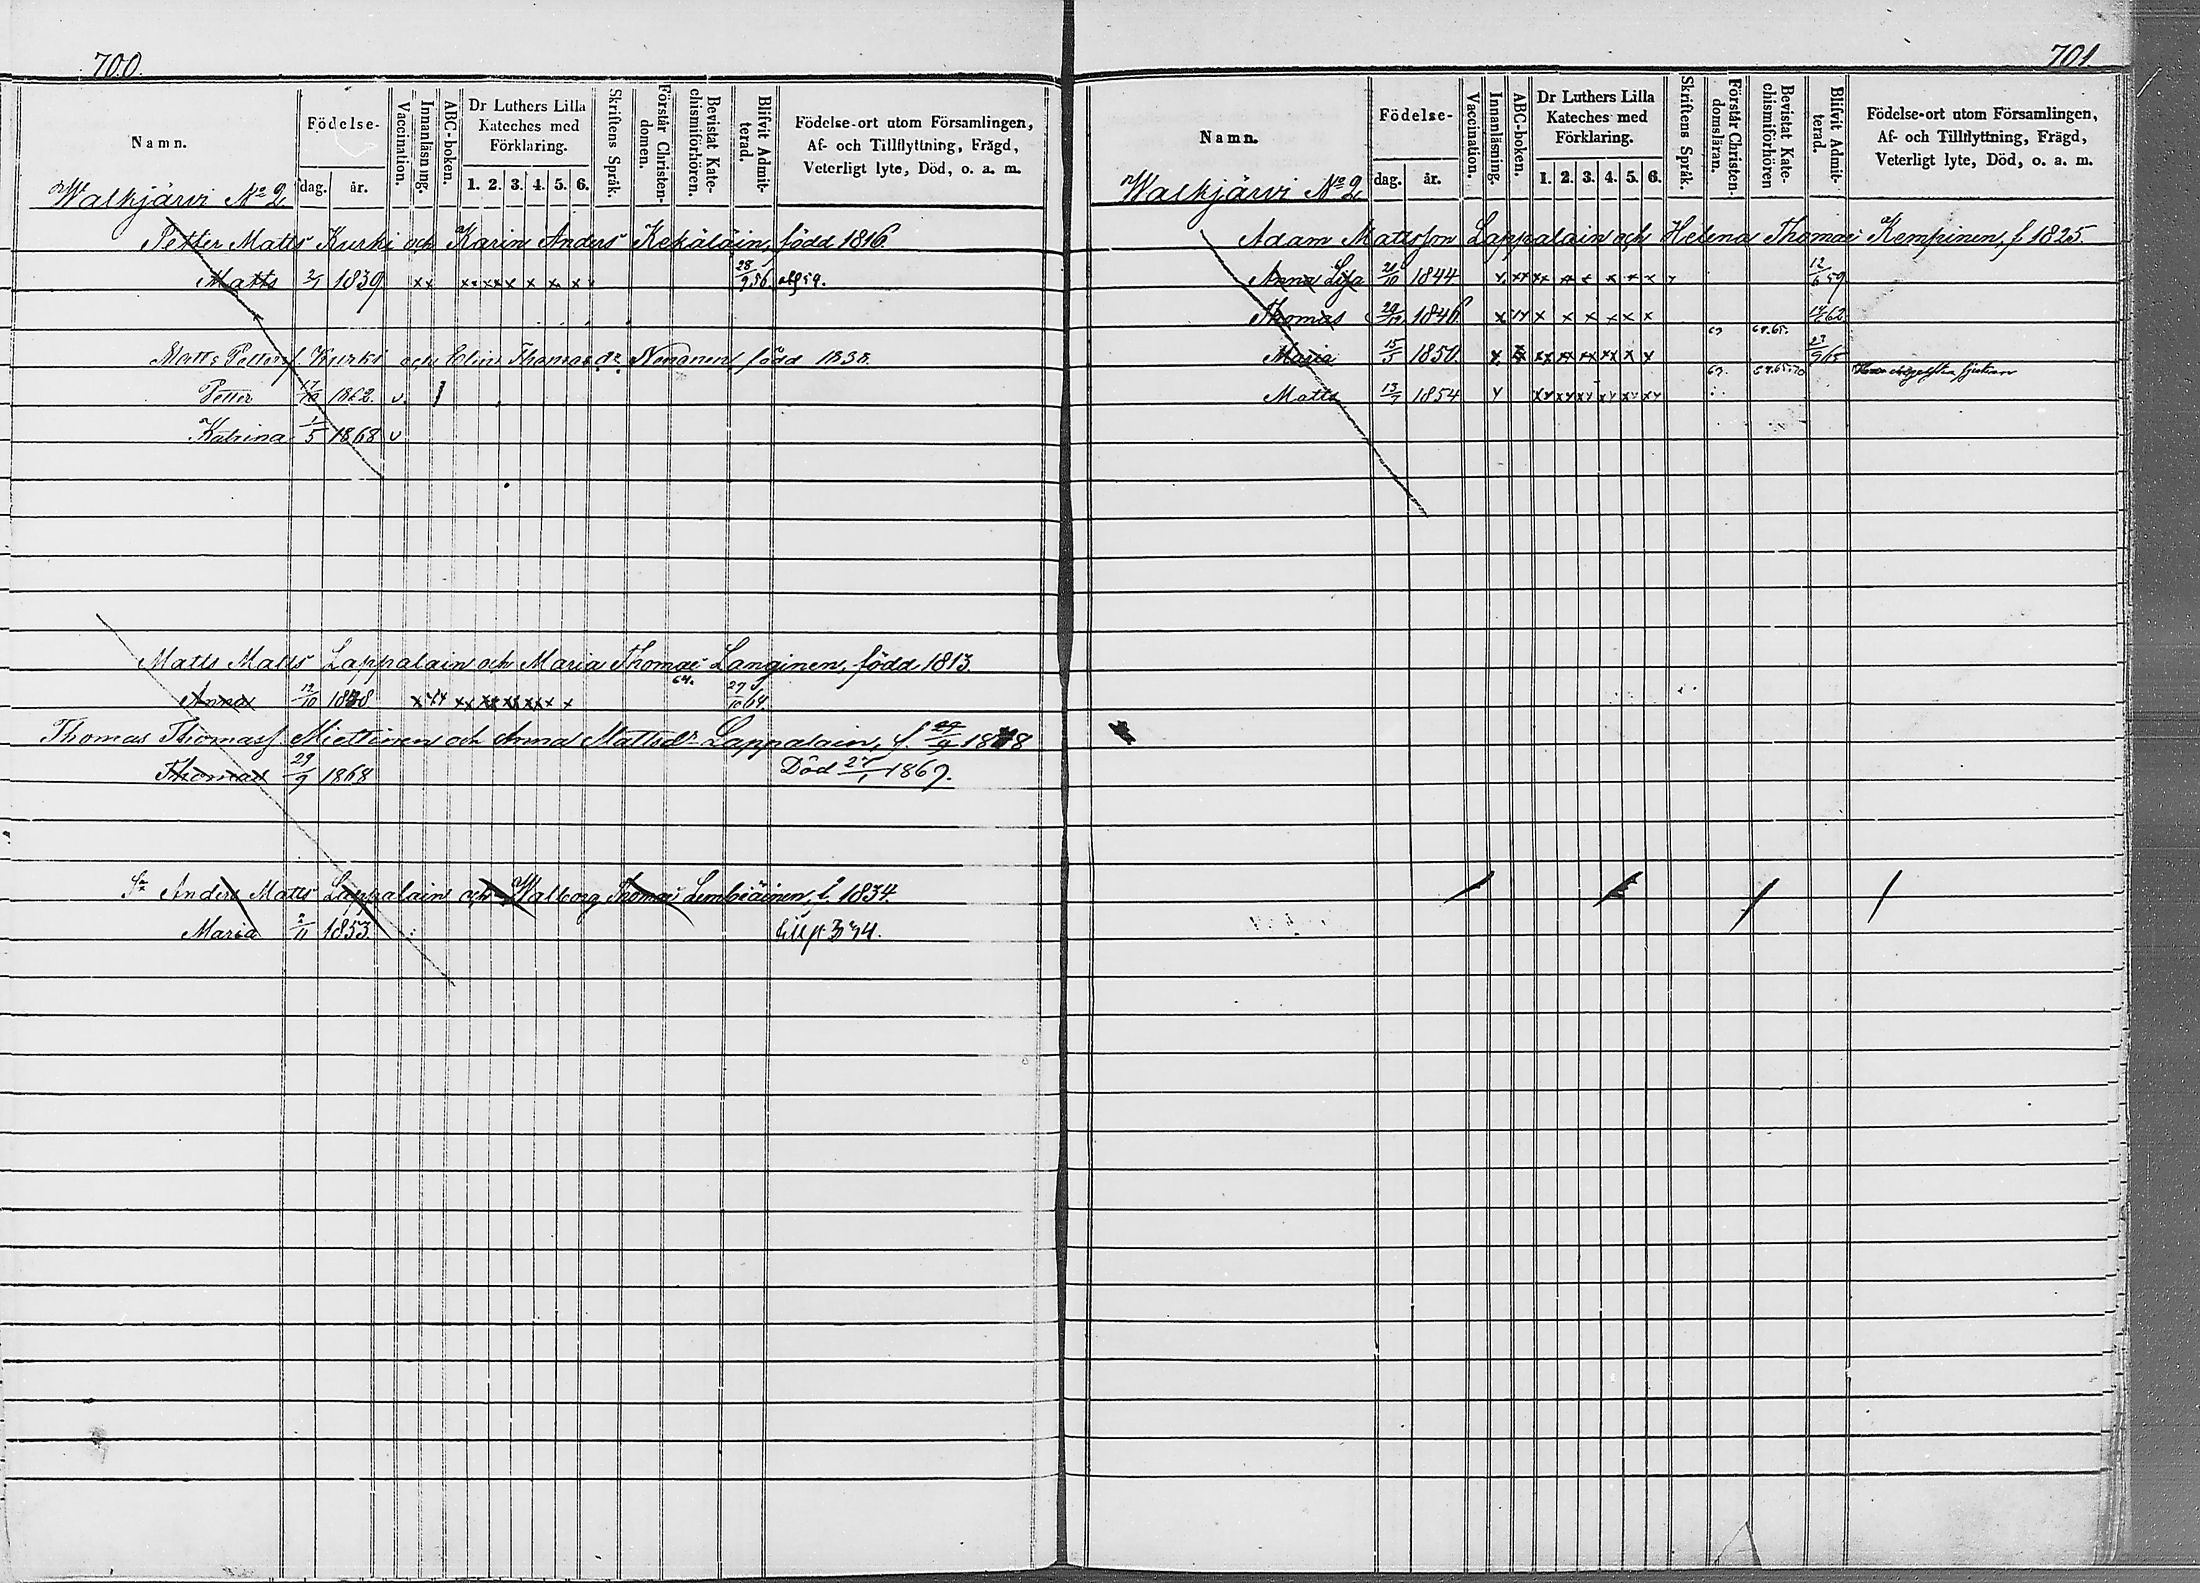 700.
Namn. Födelse- dag. år. Vaccination. Innanläsning. ABC-boken. Dr Luthers Lilla Kateches med Förklaring. 1. 2. 3. 4. 5. 6. Skriftens Språk. Förstår Christendomen. Bevistat Katechismiförhören. Blifvit Admitterad. Födelse-ort utom Församlingen, Af- och Tillflyttning, Frägd, Veterligt lyte, Död, o. a. m.
Walkjärvi No 2
Petter Matts Kurki och Karin Anders Kekäläin, född 1816.
Matts 2/1 1839 xx x x x x x x 28/9 56
Matts Petters Kurki och Elin Thomasdr Nenonen född 1838.
Petter 17/10 1862. v.
Katrina 1/5 1868 v
Matts Matts Lappalain och Maria Thomae Langinen, född 1813.
64.
Anna 12/10 1848 27/10 64.
Thomas Thomass Miettinen och Anna Mattsdr Lappalain, f. 1848
Thomas 29/9 1868 Död 27/1 1869.
Sn Anders Matts Lappalain och Walborg Thomae Lembiäinen, f. 1834.
Maria 2/11 1853. 334.
701.
Namn. Födelse- dag. år. Vaccination. Innanläsning. ABC-boken. Dr Luthers Lilla Kateches med Förklaring. 1. 2. 3. 4. 5. 6. Skriftens Språk. Förstår Christendomsläran. Bevistat Katechismiförhören Blifvit Admitterad. Födelse-ort utom Församlingen, Af- och Tillflyttning, Frägd, Veterligt lyte, Död, o. a. m.
Walkjärvi No 2
Adam Mattsson Lappalain och Helena Thomae Kempinen, f 1825.
Anna Lisa 21/10 1844 12/6 59
Thomas 1846 x x x x x x 62
Maria 15/5 1850. 27/9 65
Matts 13/7 1854